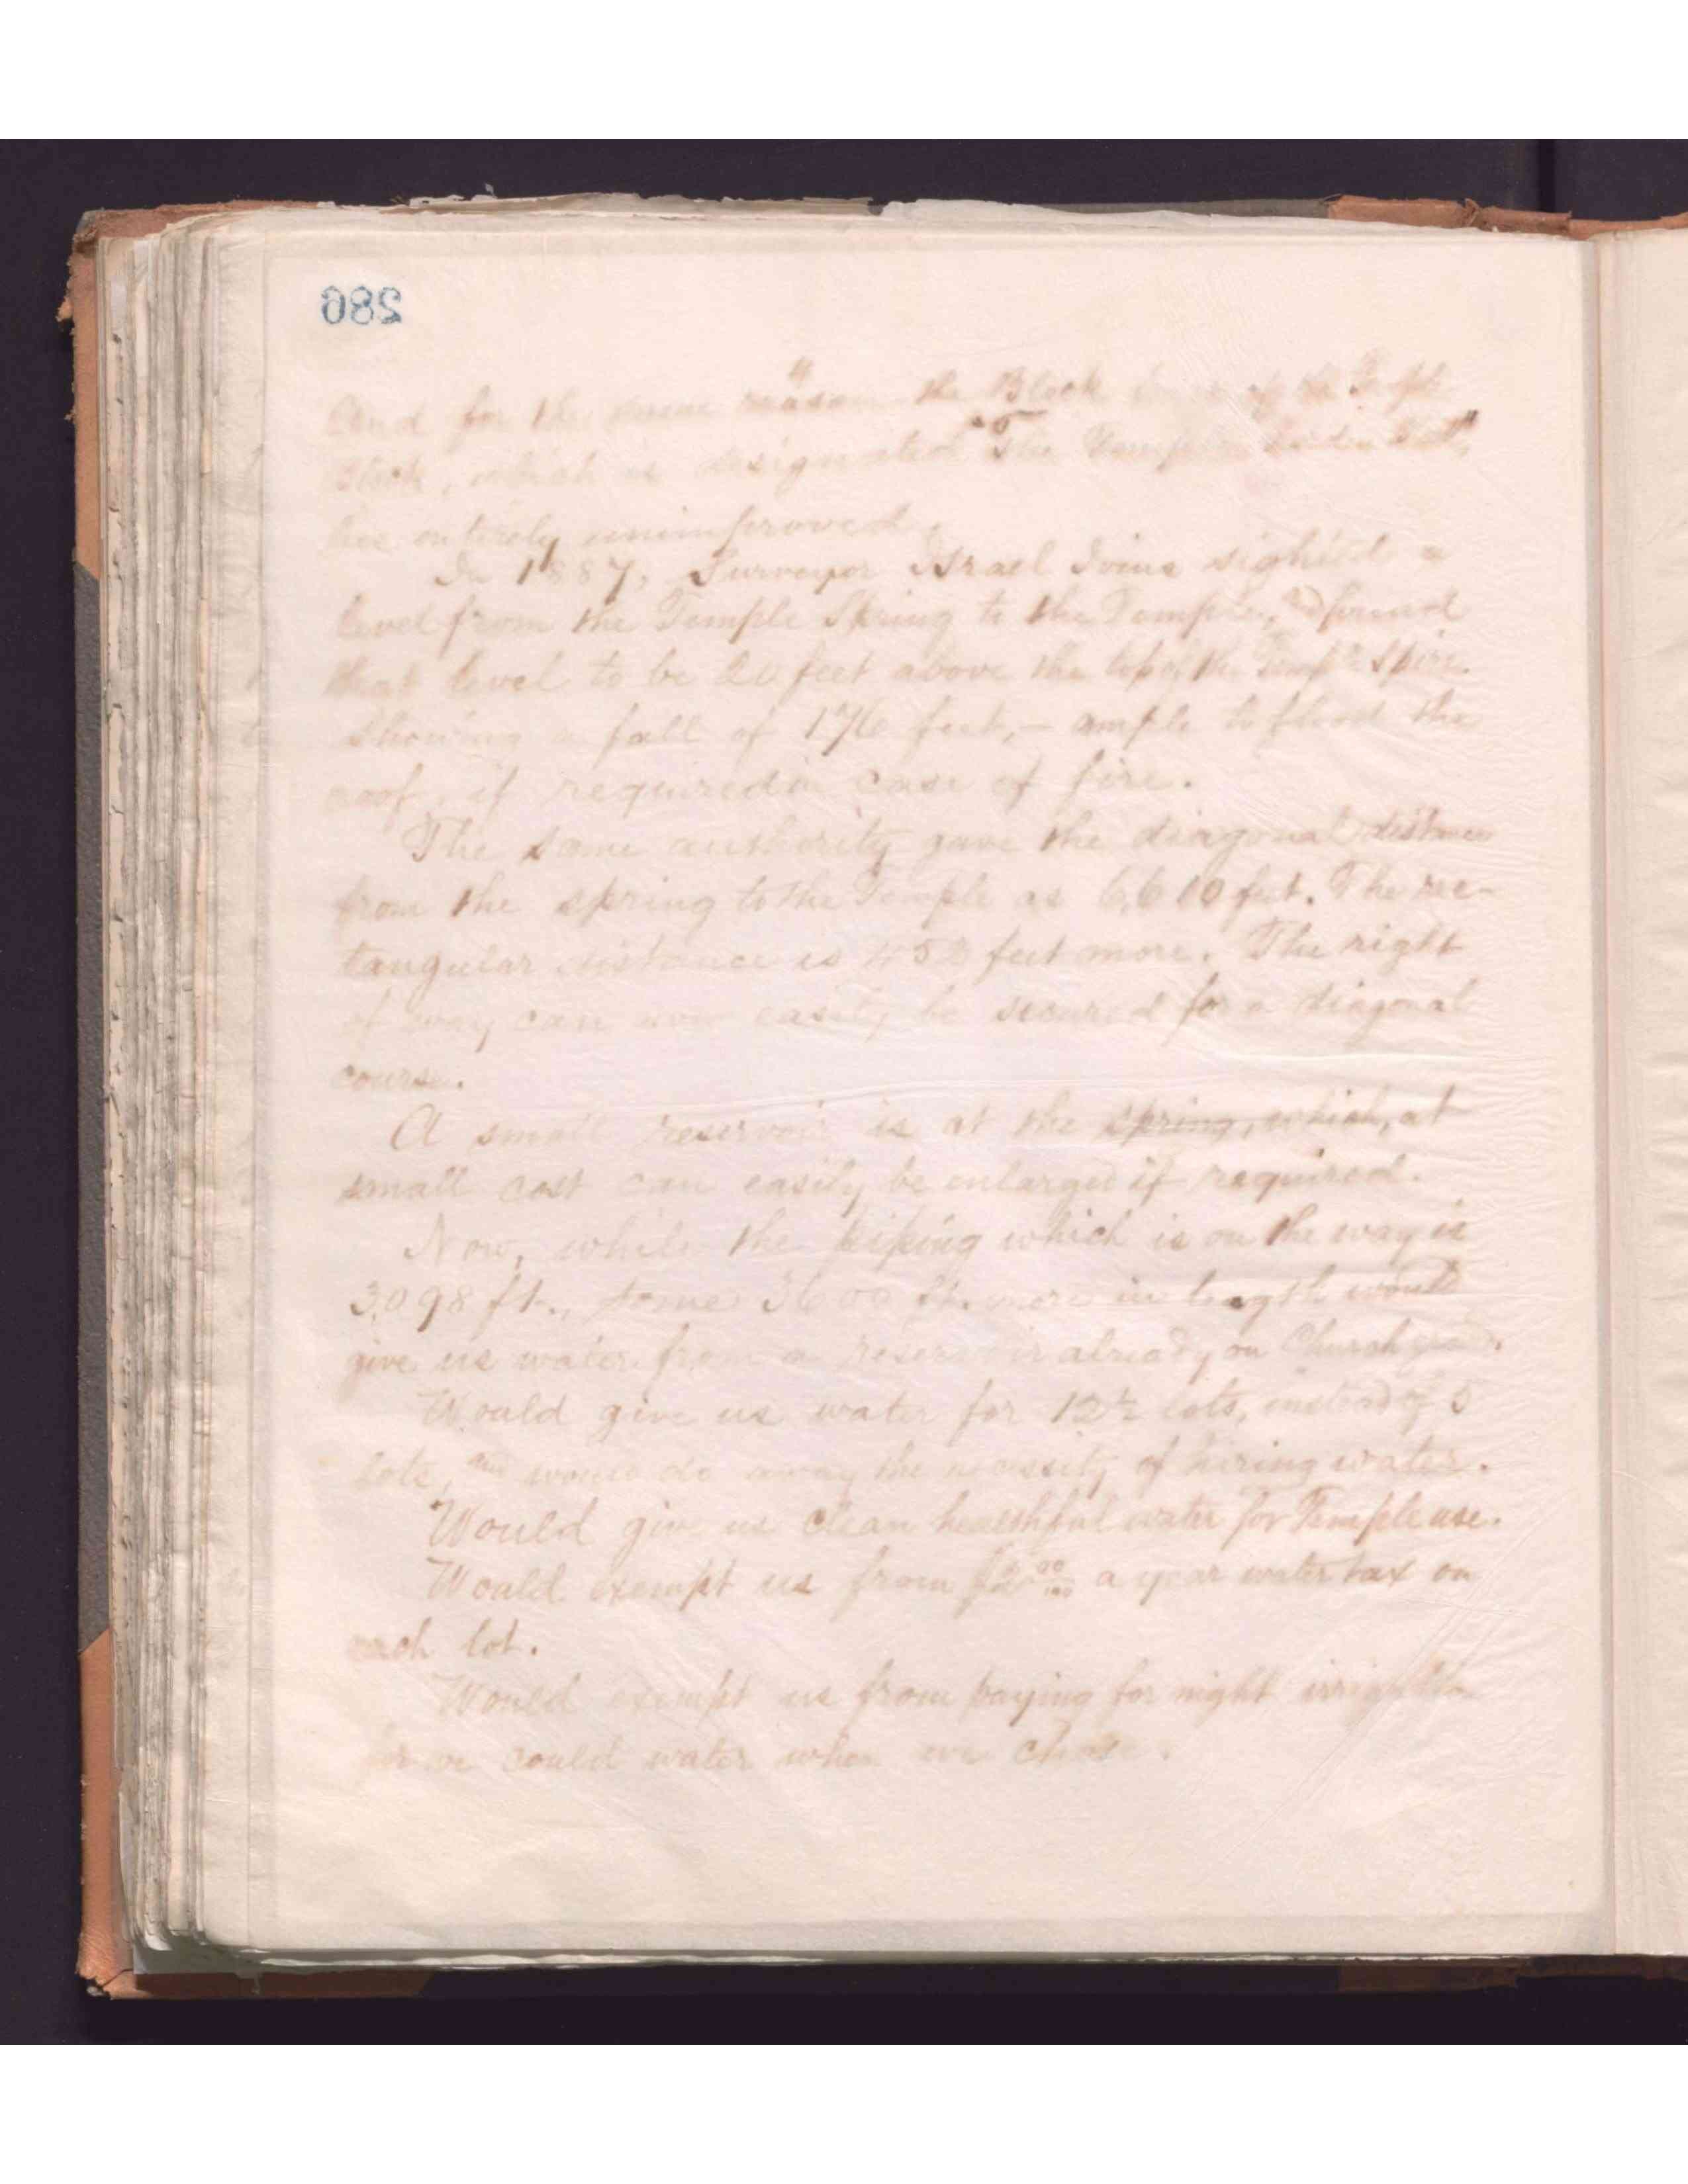 286
And for the same reason the Block
Block, which is designated "The Temple Garden Plat,"
lies entirely unimproved.
In 1887, Surveyor Israel Ivins sighted a
level from the Temple Spring to the Temple, and found
that level to be 20 feet above the top of the Temple Spire
Showing a fall of 176 feet,– ample to flood the
roof, if required in case of fire.
The same authority gave the diagonal distance
from the spring to the Temple as 6,610 feet. The rec-
tangular distance is 452 feet more. The right
of way can now easily be secured for a diagonal
course.
A small reservoir is at the spring, which, at
small cost can easily be enlarged if required.
Now, while the piping which is on the way is
3,098 ft., some 3600 ft. more in length would
give us water from a reservoir already on Church
Would give us water for 12½ lots, instead of 5
lots, and would do away the necessity of hiring water.
Would give us clean healthful water for Temple use.
Would exempt us from a year water tax on
each lot.
Would exempt us from paying for night irrigation
for we could water when we chose.